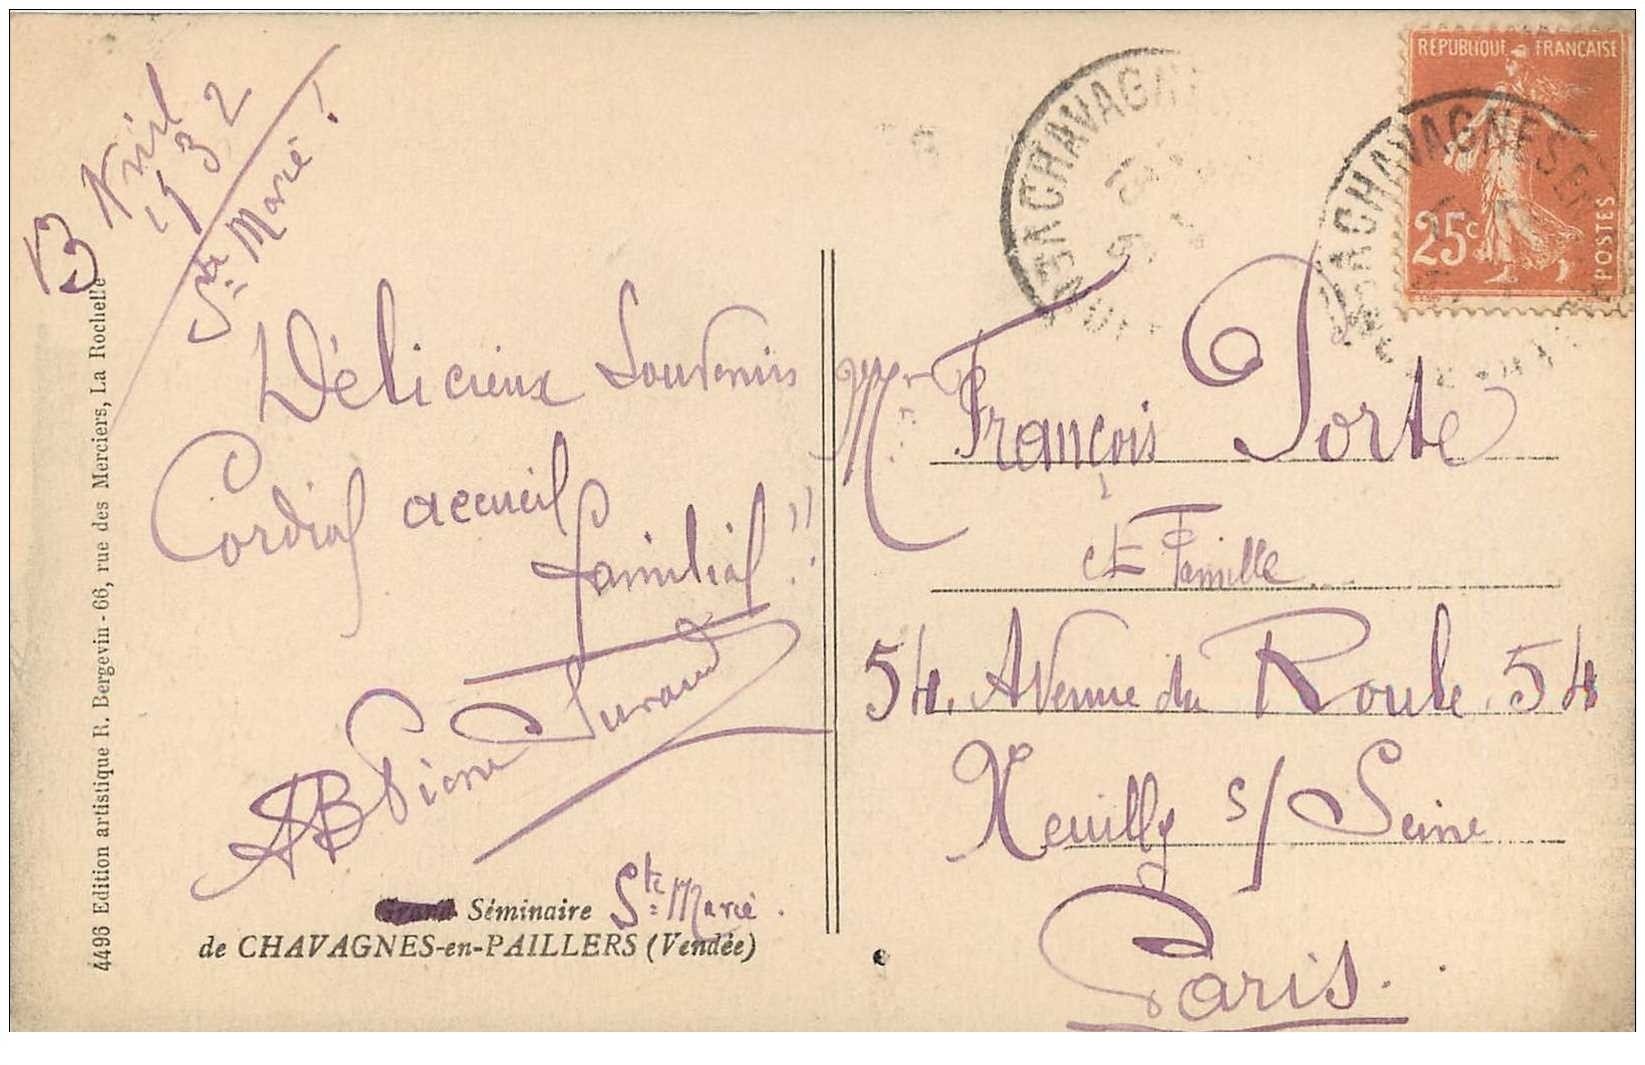 13 Avril
1932
Ste Marie !
Délicieux Souvenirs
Cordial accueil
familial !!
AB Pierre Durand
Grand Séminaire Ste Marie.
de CHAVAGNES-en-PAILLERS (Vendée)
4496 Edition artistique R. Bergevin - 66, rue des Merciers, La Rochelle
CHAVAGN
REPUBLIQUE FRANÇAISE
25c
POSTES
CHAVAGNES EN
Mr François Porte
et Famille
54, Avenue du Roule. 54
Neuilly s/ Seine
Paris.